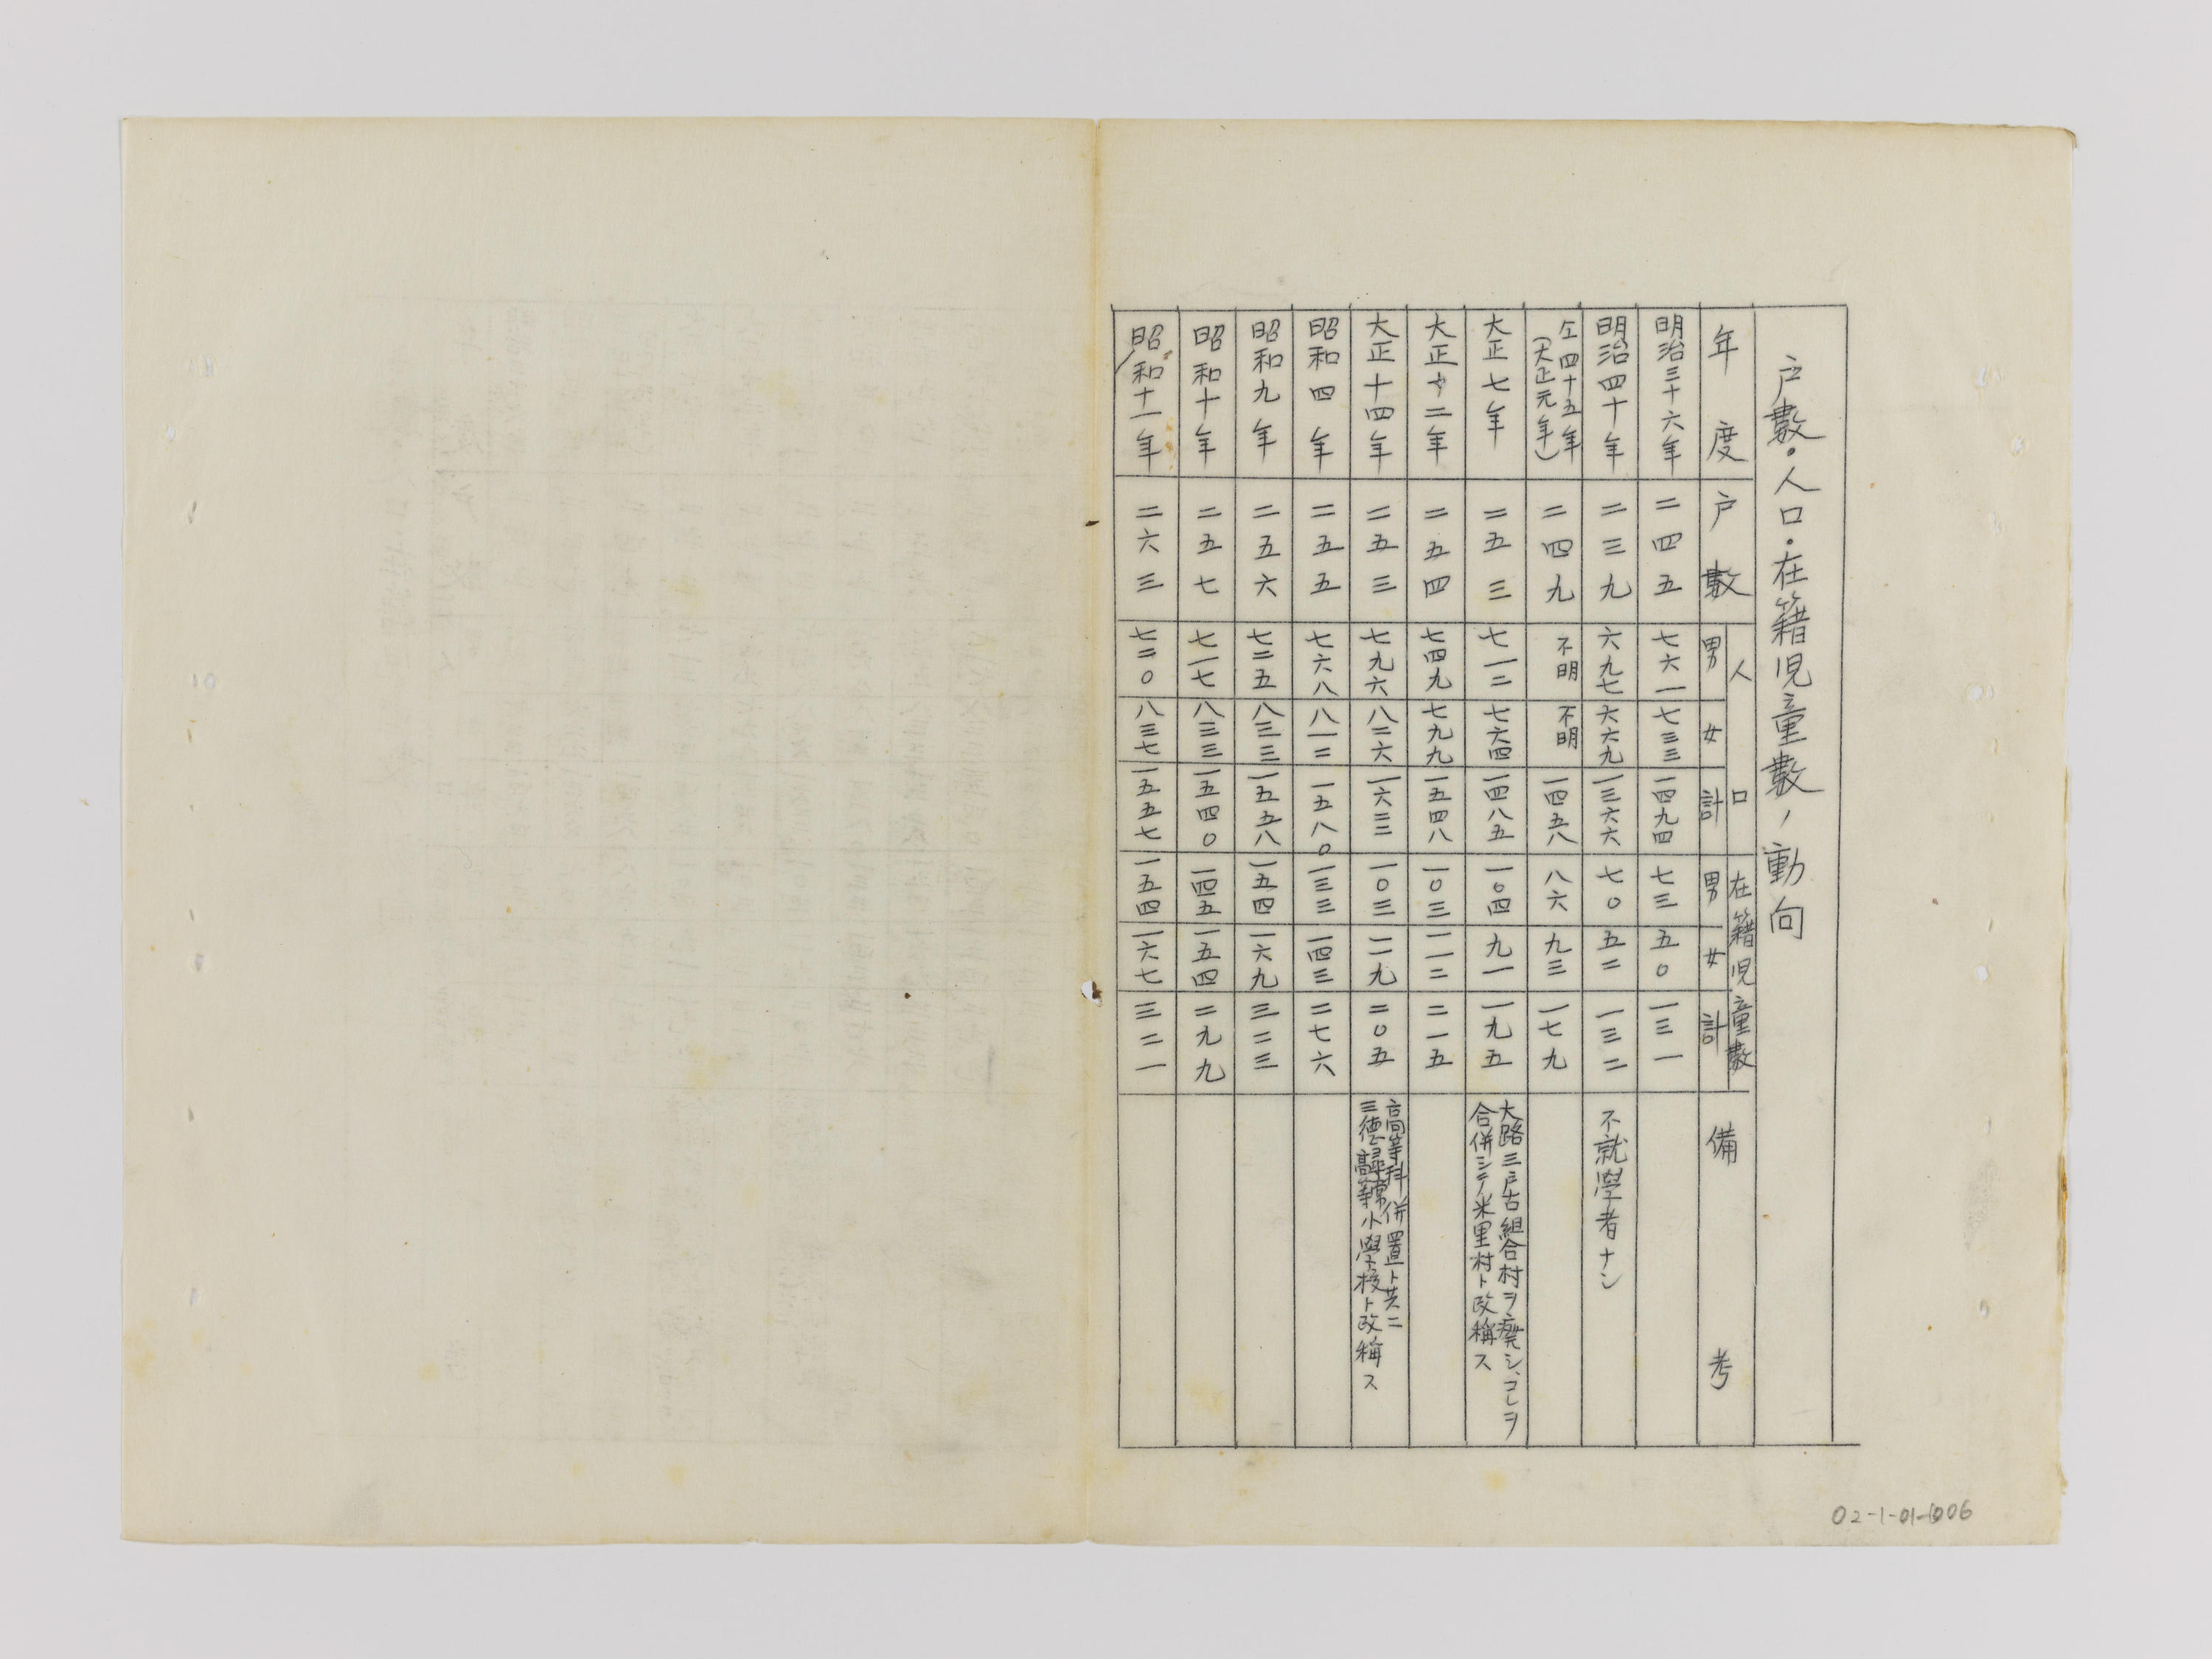 戸數・人口・在籍児童數ノ動向
年度 戸數 人口 在籍児童數 備考
男 女 計 男 女 計
明治三十六年 二四五 七六一 七三三 一四九四 七三 五〇 一三一
明治四十年 二三九 六九七 六六九 一三六六 七〇 五二 一三二 不就學者ナシ
仝四十五年 二四九 不明 不明 一四五八 八六 九三 一七九
(大正元年)
大正七年 二五三 七一二 七六四 一四八五 一〇四 九一 一九五 大路三戸古組合村ヲ廢シ、コレヲ
合併シテ米里村ト改稱ス
大正十二年 二五四 七四九 七九九 一五四八 一〇三 一一二 二一五
大正十四年 二五三 七九六 八二六 一六三二 一〇三 一一九 二〇五 高等科併置ト共ニ
三徳尋常高等小學校ト改稱ス
昭和四年 二五五 七六八 八一二 一五八〇 一三三 一四三 二七六
昭和九年 二五六 七二五 八三三 一五五八 一五四 一六九 三二三
昭和十年 二五七 七一七 八三三 一五四〇 一四五 一五四 二九九
昭和十一年 二六三 七二〇 八三七 一五五七 一五四 一六七 三二一
02-1-01-006